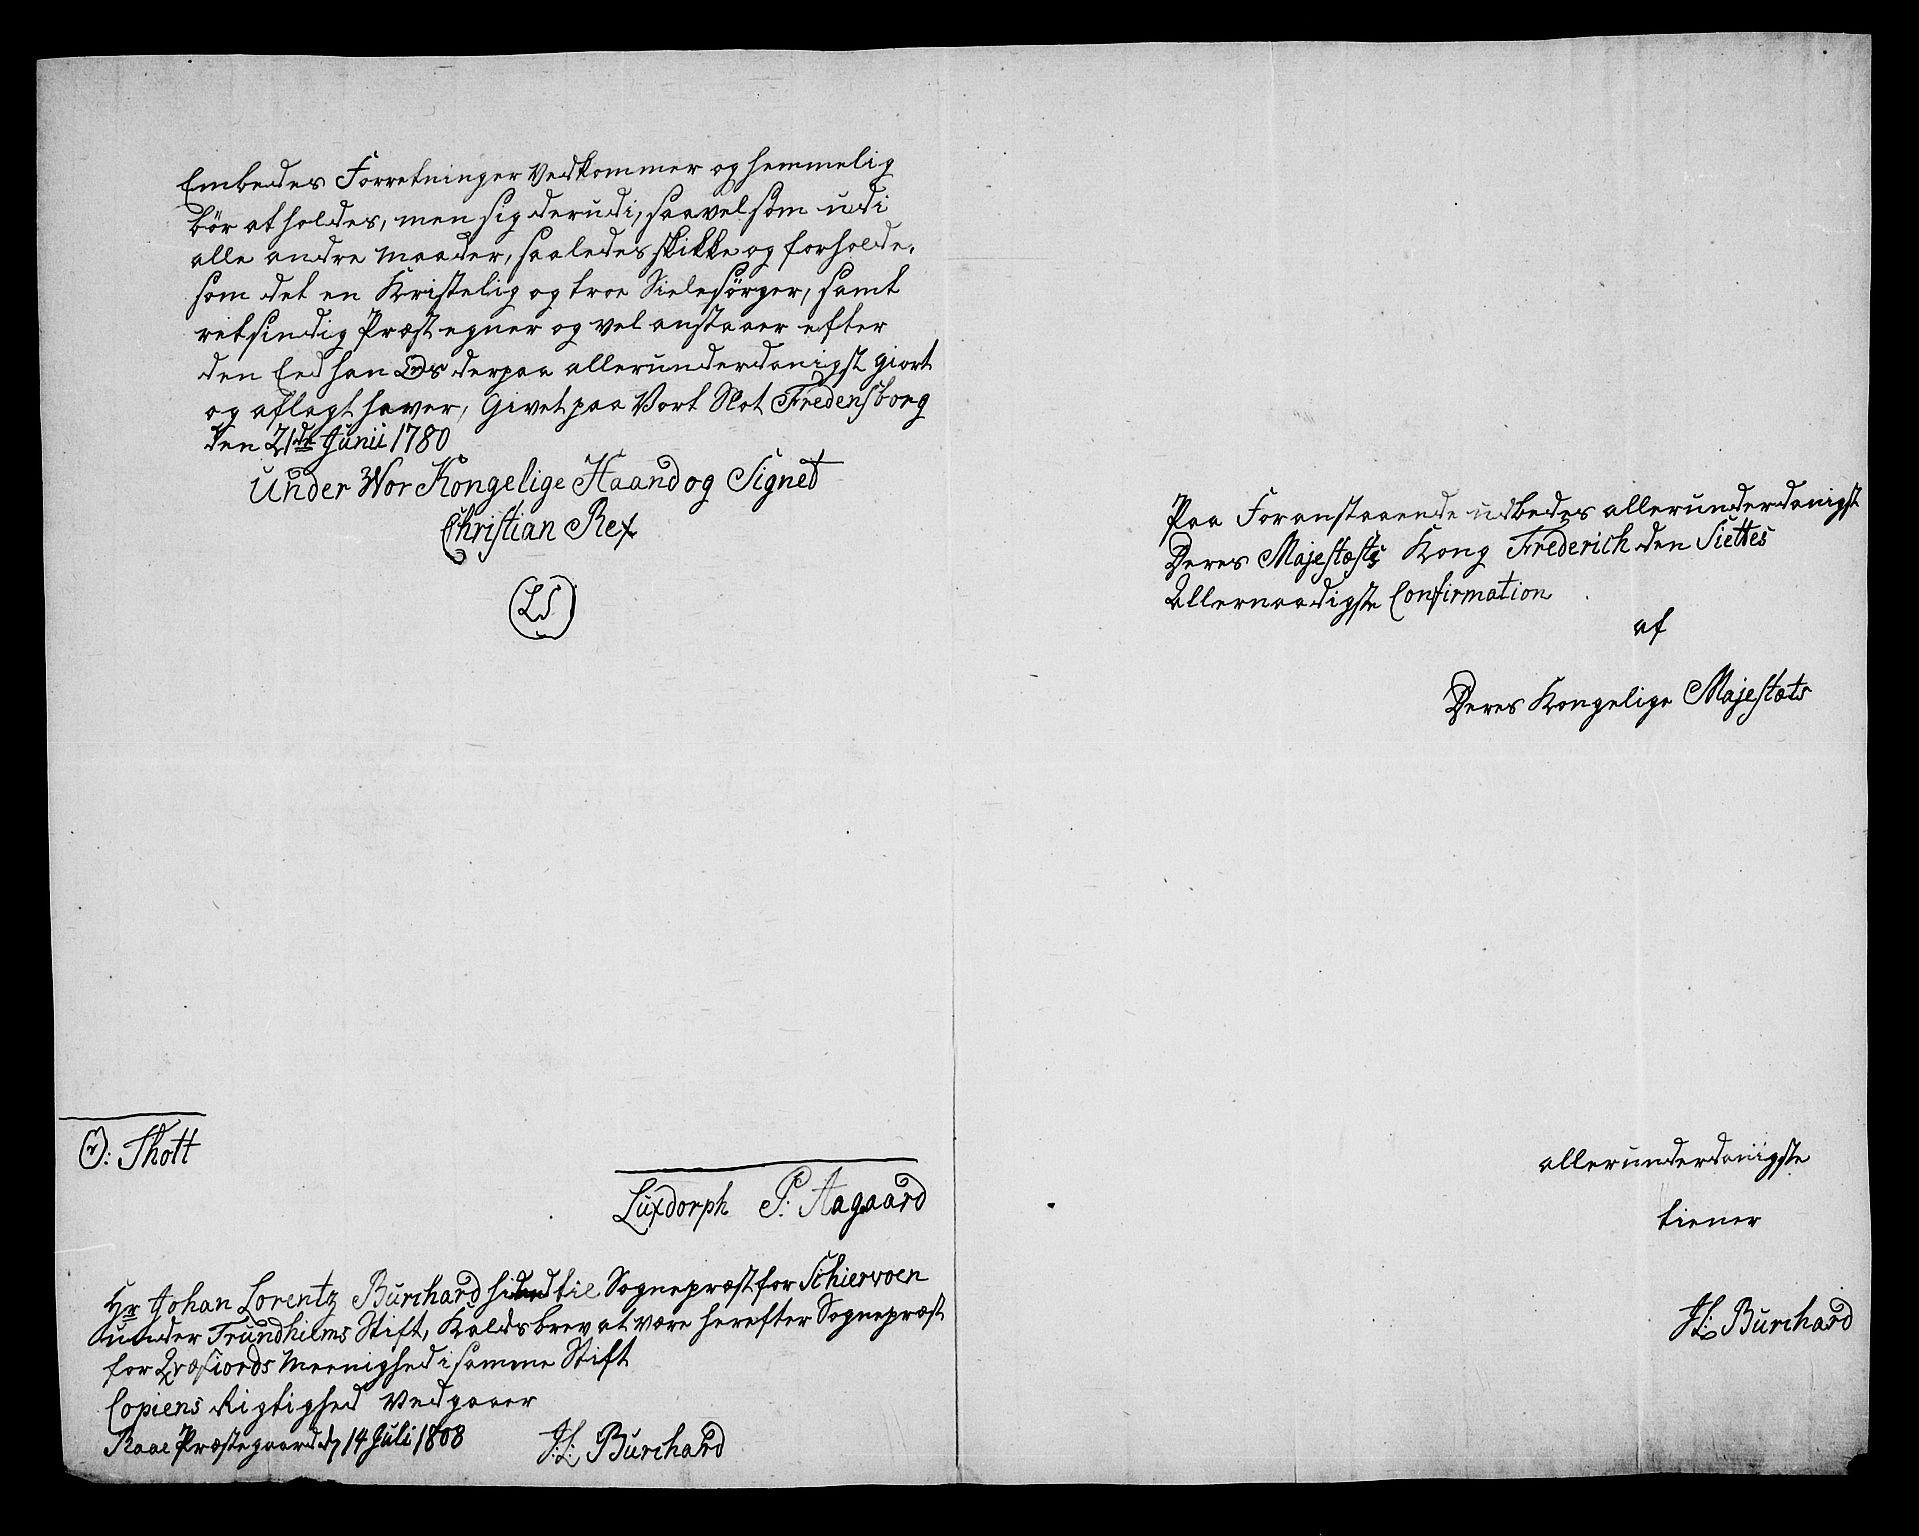 Embedes Forretninger vedkommer og hemmelig
bör at holdes, men sig derudi, saavelsom udi
alle andre maader, saaledes skikke og forholde,
som det en Kristelig og troe Sielesörger, samt
retsindig Præst egner og vel anstaaer efter
den Eed han Os derpaa allerunderdanigst giort
og aflagt haver, Givet paa Vort Slot Fredensborg
den 21de Junii 1780
Under Wor Kongelige Haand og Signet
Christian Rex
LS
O: Thott
Luxdorph P: Aagaard
Hr Johan Lorentz Burchard hidindtil Sognepræst for Schiervoen
under Trundhiems Stift, Kaldsbrev at være herefter Sognepræst
for Qvæfiords Meenighed i samme Stift
Copiens Rigtighed vedgaaer
Raae Præstegaard d 14 Juli 1808 J:L: Burchard
Paa Foranstaaende udbedes allerunderdanigst
Deres Majestæts Kong Frederich den Siettes
Allernaadigste Confirmation
af
Deres Kongelige Majestæts
allerunderdaniigste
tiener
JL: Burchard